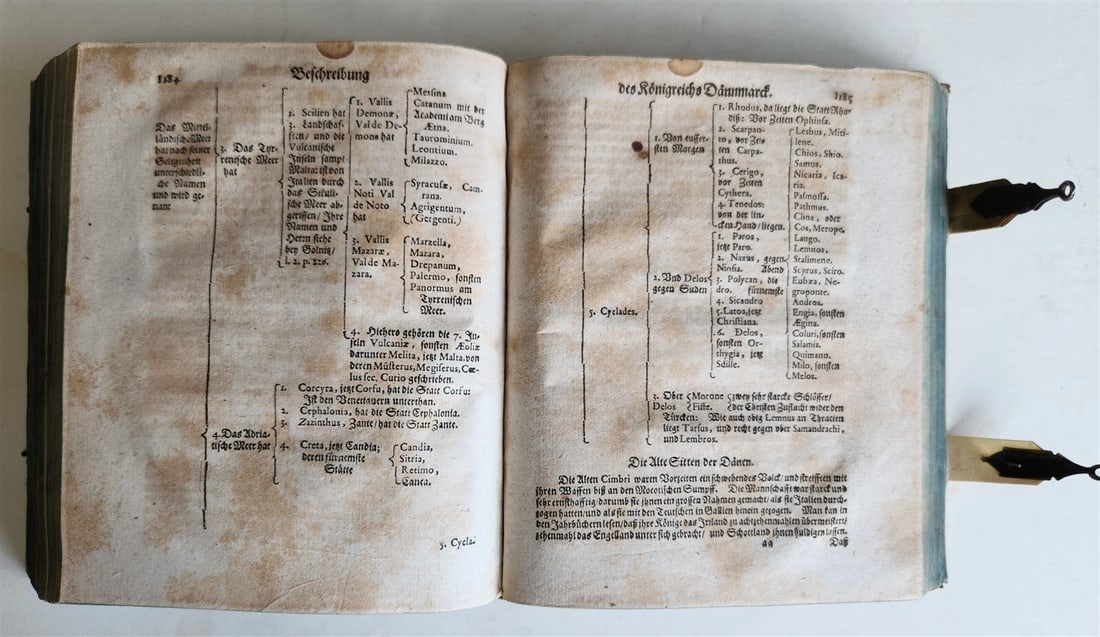 1184
Beschreibung
Das Mittel-
ländische Meer
hat nach seiner
Gelegenheit
unterschiedli-
che Namen
und wird ge-
nant
3. Das Tyr-
renische Meer
hat
1. Scilien hat
3. Landschaf-
ften/ und die
Volcanische
Inseln sampt
Malta: ist von
Italien durch
das Sikuli-
sche Meer ab-
gerissen/ Ihre
Namen und
Herrn siehe
bey Golnitz/
l. 2. p. 226.
1. Vallis
Demonæ,
Val de De-
mona hat
Messina
Catanum mit der
Academiam Berg
Ætna.
Taurominium.
Leontium.
Milazzo.
2. Vallis
Noti Val
de Noto
hat
Syracusæ, Cam-
rana.
Agrigentum,
(Gergenti.)
3. Vallis
Mazaræ,
Val de Ma-
zara.
Marzella,
Mazara,
Drepanum,
Palermo, sonsten
Panormus am
Tyrrenischen
Meer.
4. Hiehero gehören die 7. In-
seln Vulcaniæ, sonsten Æoliæ
darunter Melita, jetzt Malta, von
deren Müsterus, Megiserus, Cœ-
lus sec. Curio geschrieben.
4. Das Adria-
tische Meer hat
1. Corcyra, jetzt Corfu, hat die Statt Corfu:
Ist den Venetianern unterthan.
2. Cephalonia, hat die Statt Cephalonia.
3. Zazinthus, Zante/ hat die Statt Zante.
4. Creta, jetzt Candia;
deren fürnemste
Stätte
Candia,
Sitria,
Retimo,
Canea.
5. Cycla-
des Königreichs Dännmarck.
1185
5. Cyclades.
1. Von eusser-
sten Morgen
1. Rhodus, da liegt die Statt Rho-
diß: Vor Zeiten Ophiusa.
2. Scarpan-
to, vor Zei-
ten Carpa-
thus.
3. Cerigo,
vor Zeiten
Cythera.
4. Tenedos:
von der lin-
cken Hand/ liegen.
Lesbus, Miti-
lene.
Chios, Shio.
Samus.
Nicaria, Ica-
ria.
Palmossa.
Pathmus.
Chos, oder
Cos, Merope.
Lango.
Lemnos,
Stalimene.
Scyrus, Sciro.
Eubæa, Ne-
groponte.
Andros.
Engia, sonsten
Ægina.
Coluri, sonsten
Salamis.
Quimano.
Milo, sonsten
Melos.
2. Und Delos
gegen Suden
1. Paros,
jetzt Paro.
2. Naxus, gegen
Ninsia. Abend
3. Polycan, die
dro. fürnemste
4. Sicandro
5. Latoa, jetzt
Christiana.
6. Delos,
sonsten Or-
thygia, jetzt
Sdille.
3. Ober Morone zwey sehr starcke Schlösser/
Delos Fiste. der Christen Zuflucht wider den
Türcken: Wie auch obig Lemnus an Thracien
liegt Tarsus, und recht gegen ober Samandrachi,
und Lembros.
Die Alte Sitten der Dänen.
Die Alten Cimbri waren Vorzeiten ein schwebendes Volck/ und streifften mit
ihren Waffen biß an den Morotischen Sumpff. Die Mannschafft war starck und
sehr ernsthafftig/ darumb sie ihnen ein großen Nahmen gemacht/ als sie Italien durch-
zogen hatten/ und als sie mit den Teutschen in Gallien hinein gezogen. Man kan in
den Jahrbüchern lesen/ daß ihre Könige das Irrland zu achtzehenmahlen übermeistert/
zehenmahl das Engelland unter sich gebracht/ und Schottland ihnen huldigen lassen.
gg
Daß